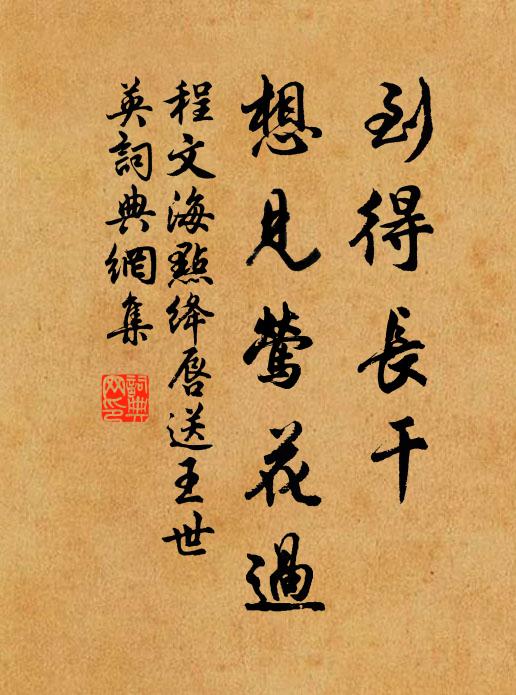 到得長干
想見鶯花過
程文海點絳唇送王世
英詞典網集
詞典
网印